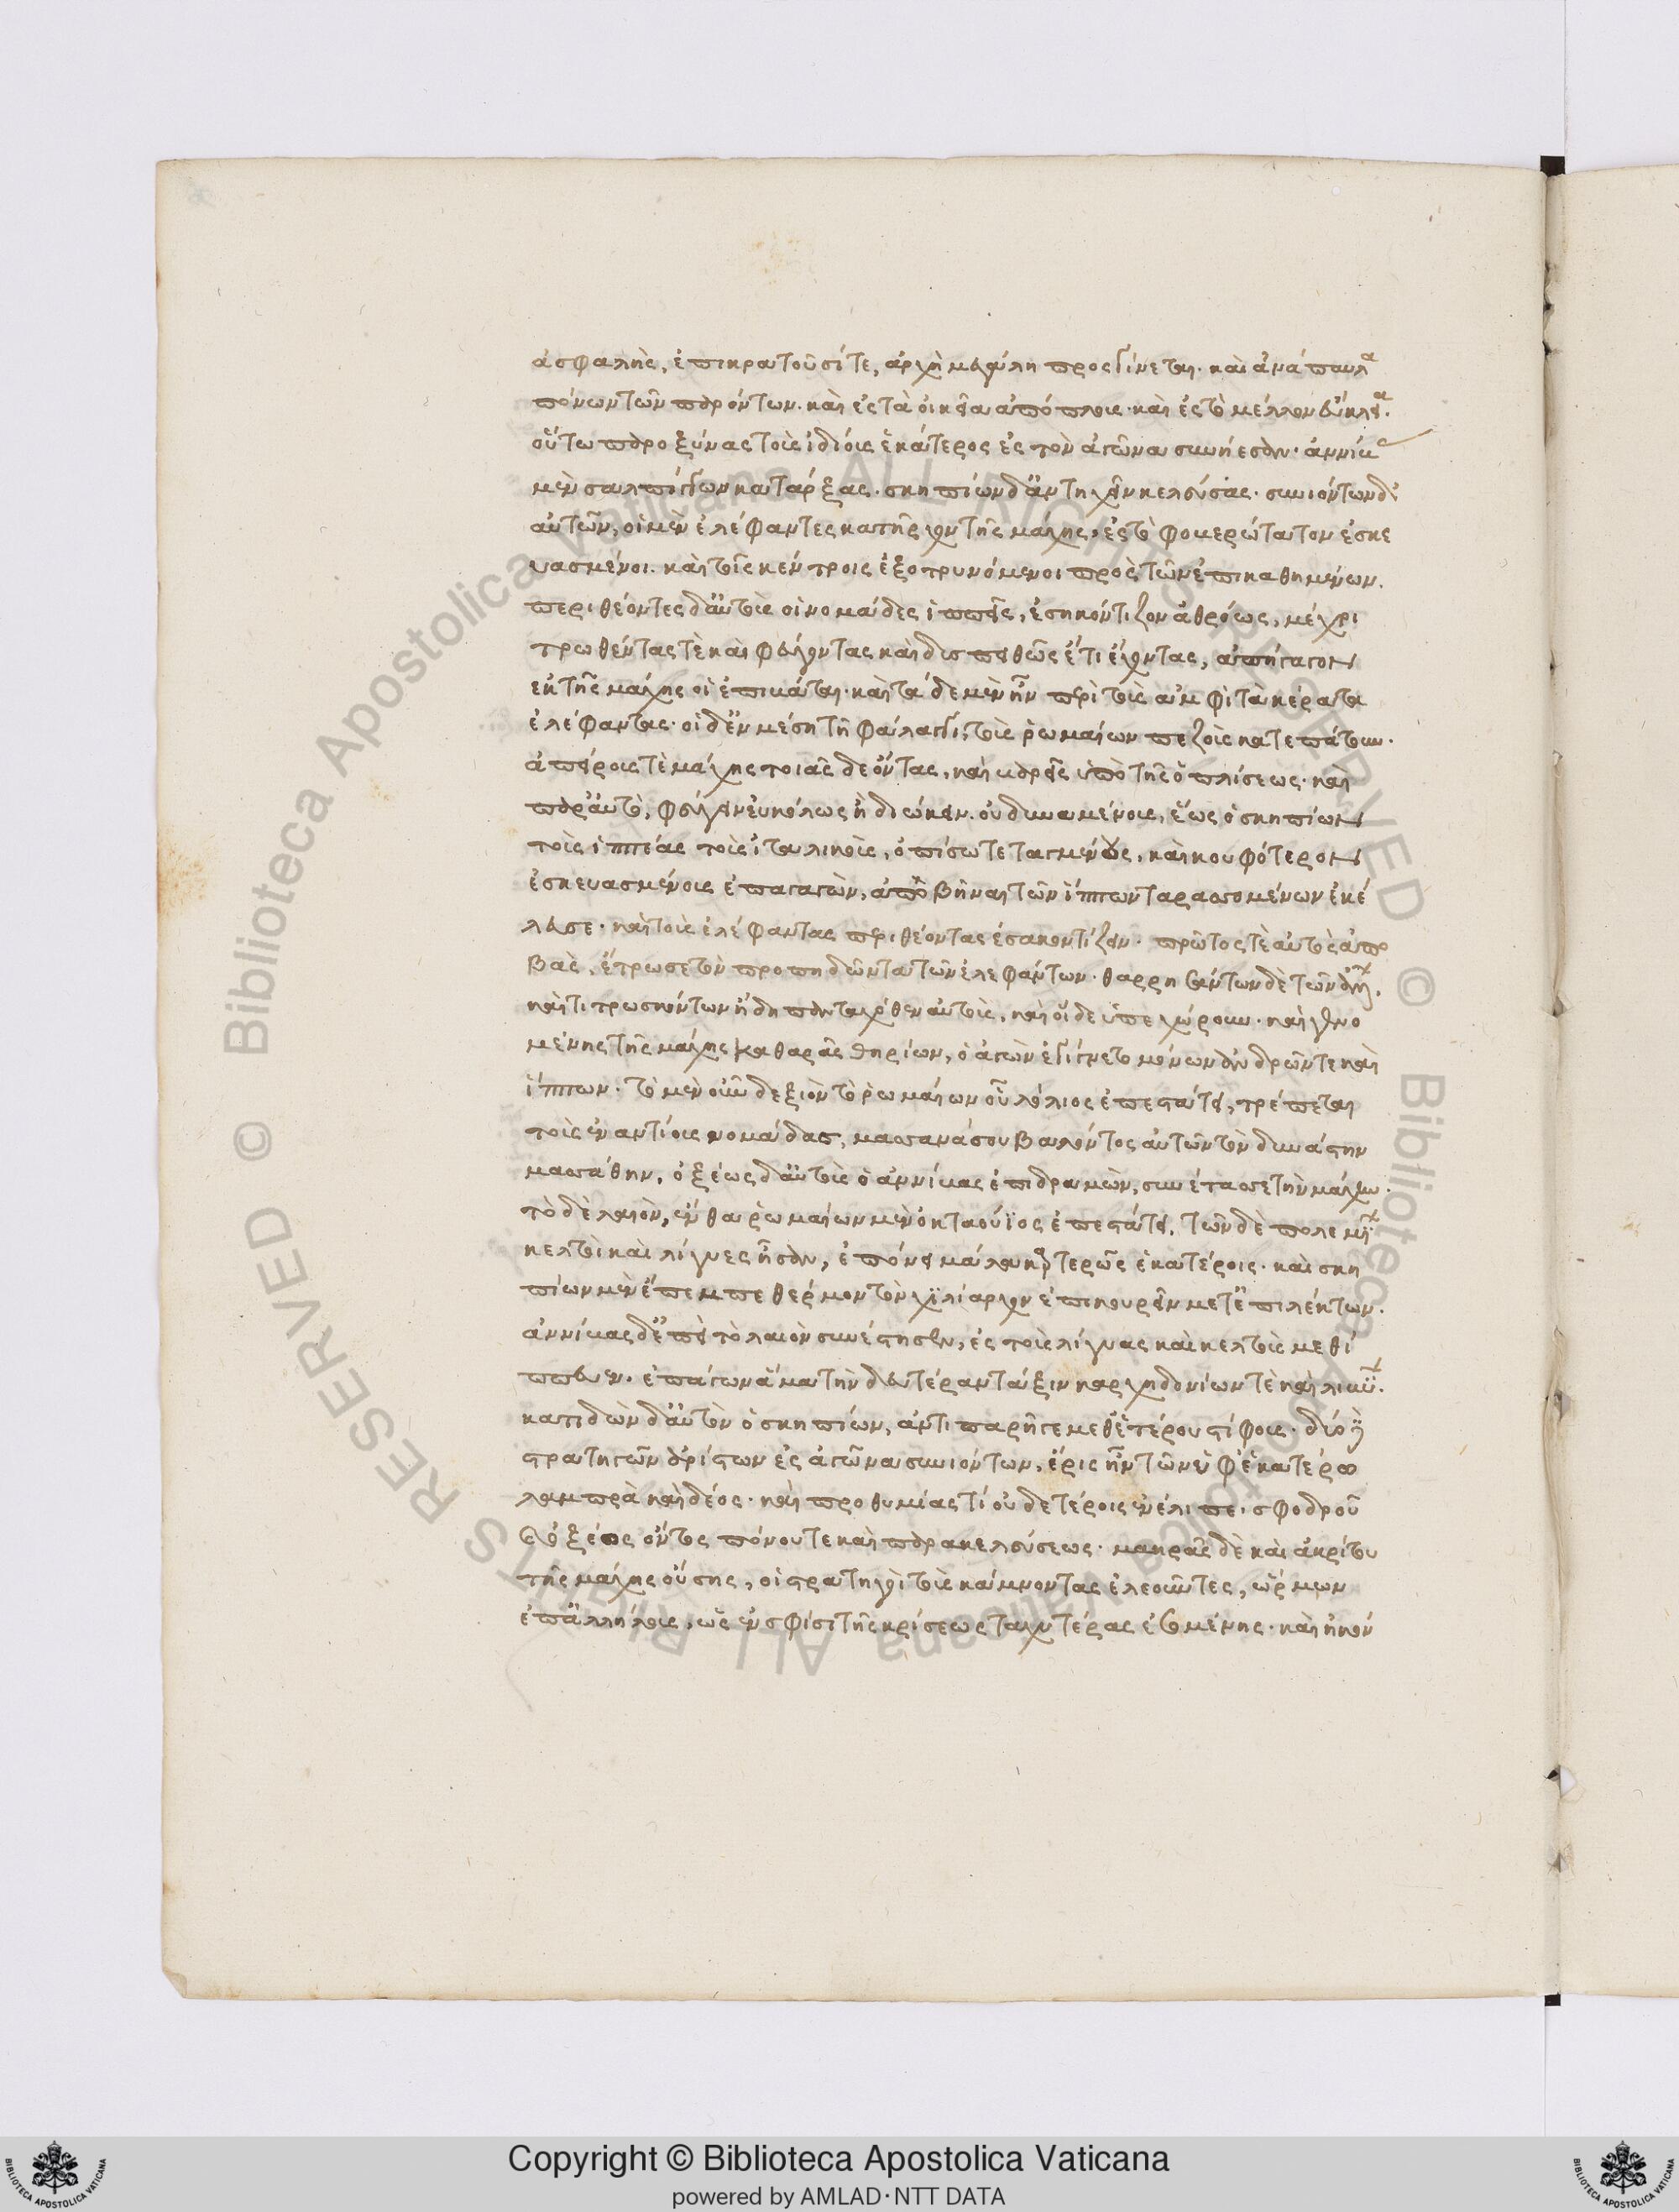 ἀσφαλὴς, ἐπικρατοῦσί τε, ἀρχὴ μεγάλη προσγίνεται. καὶ ἀνάπαυλα
πόνων τῶν παρόντων. καὶ ἐς τὰ οἰκεῖα ἀπόπλους. καὶ ἐς τὸ μέλλον εὔκλεια.
οὕτω παροξύνας τοὺς ἰδίους ἑκάτερος ἐς τὸν ἀγῶνα συνῄεσαν. ἀννίβας
μὲν σαλπίγγων κατάρξας. σκηπίων δ' ἀντηχεῖν κελεύσας. συνιόντων δ'
αὐτῶν, οἱ μὲν ἐλέφαντες κατῆρχον τῆς μάχης, ἐς τὸ φοβερώτατον ἐσκε
υασμένοι. καὶ τοῖς κέντροις ἐξοτρυνόμενοι πρὸς τῶν ἐπικαθημένων.
περιθέοντες δ' αὐτοὺς οἱ νομάδες ἱππεῖς, ἐσηκόντιζον ἀθρόως, μέχρι
τρωθέντας τὲ καὶ φεύγοντας καὶ δυσπειθῶς ἔτι ἔχοντας, ἀπήγαγον
ἐκ τῆς μάχης οἱ ἐπιβάται. καὶ τάδε μὲν ἦν περὶ τοὺς ἀμφὶ τὰ κέρατα
ἐλέφαντας. οἱ δ' ἐν μέσῃ τῇ φάλαγγι, τοὺς ῥωμαίων πεζοὺς κατεπάτουν.
ἀπείρους τὲ μάχης τοιᾶσδε ὄντας, καὶ βαρεῖς ὑπὸ τῆς ὁπλίσεως. καὶ
παρ' αὐτὸ, φεύγειν εὐκόλως ἢ διώκειν. οὐ δυναμένους, ἕως ὁ σκηπίων
τοὺς ἱππέας τοὺς ἰταλικοὺς, ὀπίσω τεταγμένους, καὶ κουφότερον
ἐσκευασμένους ἐπαγαγὼν, ἀποβῆναι τῶν ἵππων ταρασσομένων ἐκέ
λευσε. καὶ τοὺς ἐλέφαντας περιθέοντας ἐσακοντίζειν. πρῶτος τὲ αὐτὸς ἀπο
βὰς, ἔτρωσε τὸν προπηδῶντα τῶν ἐλεφάντων. θαρρησάντων δὲ τῶν ἄλλων.
καὶ τιτρωσκόντων ἤδη πανταχόθεν αὐτοὺς, καὶ οἵδε ὑπεχώρουν. καὶ γενο
μένης τῆς μάχης καθαρᾶς θηρίων, ὁ ἀγὼν ἐγίγνετο μόνων ἀνδρῶν τε καὶ
ἵππων. τὸ μὲν οὖν δεξιὸν τὸ ῥωμαίων οὗ λόλιος ἐπεστάτει, τρέπεται
τοὺς ἐναντίους νομάδας, μασσανάσου βαλόντος αὐτῶν τὸν δυνάστην
μασσάθην, ὀξέως δ' αὐτοὺς ὁ ἀννίβας ἐπιδραμὼν, συνέτασσε τὴν μάχην.
τὸ δὲ λαιὸν, ἔνθα ῥωμαίων μὲν ὀκταούϊος ἐπεστάτει, τῶν δὲ πολεμίων
κελτοὶ καὶ λίγυες ἦσαν, ἐπόνει μάλα καρτερῶς ἑκατέροις. καὶ σκη
πίων μὲν ἔπεμπε θέρμον τὸν χιλίαρχον ἐπικουρεῖν μετ' ἐπιλέκτων.
ἀννίβας δ' ἐπεὶ τὸ λαιὸν συνέστησεν, ἐς τοὺς λίγυας καὶ κελτοὺς μεθί
ππευεν. ἐπάγων ἅμα τὴν δευτέραν τάξιν καρχηδονίων τὲ καὶ λιβύων.
κατιδὼν δ' αὐτὸν ὁ σκηπίων, ἀντιπαρῆγε μεθ' ἑτέρου στίφους. δύο δὲ
στρατηγῶν ἀρίστων ἐς ἀγῶνα συνιόντων, ἔρις ἦν τῶν ὑφ' ἑκατέρῳ
λαμπρὰ καὶ δέος. καὶ προθυμίας τί οὐδετέροις ἐνέλιπε. σφοδροῦ
καὶ ὀξέος ὄντος πόνου τε καὶ παρακελεύσεως. μακρᾶς δὲ καὶ ἀκρίτου
τῆς μάχης οὔσης, οἱ στρατηγοὶ τοὺς κάμνοντας ἐλεοῦντες, ὥρμων
ἐπ' ἀλλήλους, ὡς ἐν σφίσι τῆς κρίσεως ταχυτέρας ἐσομένης. καὶ ἠκόν